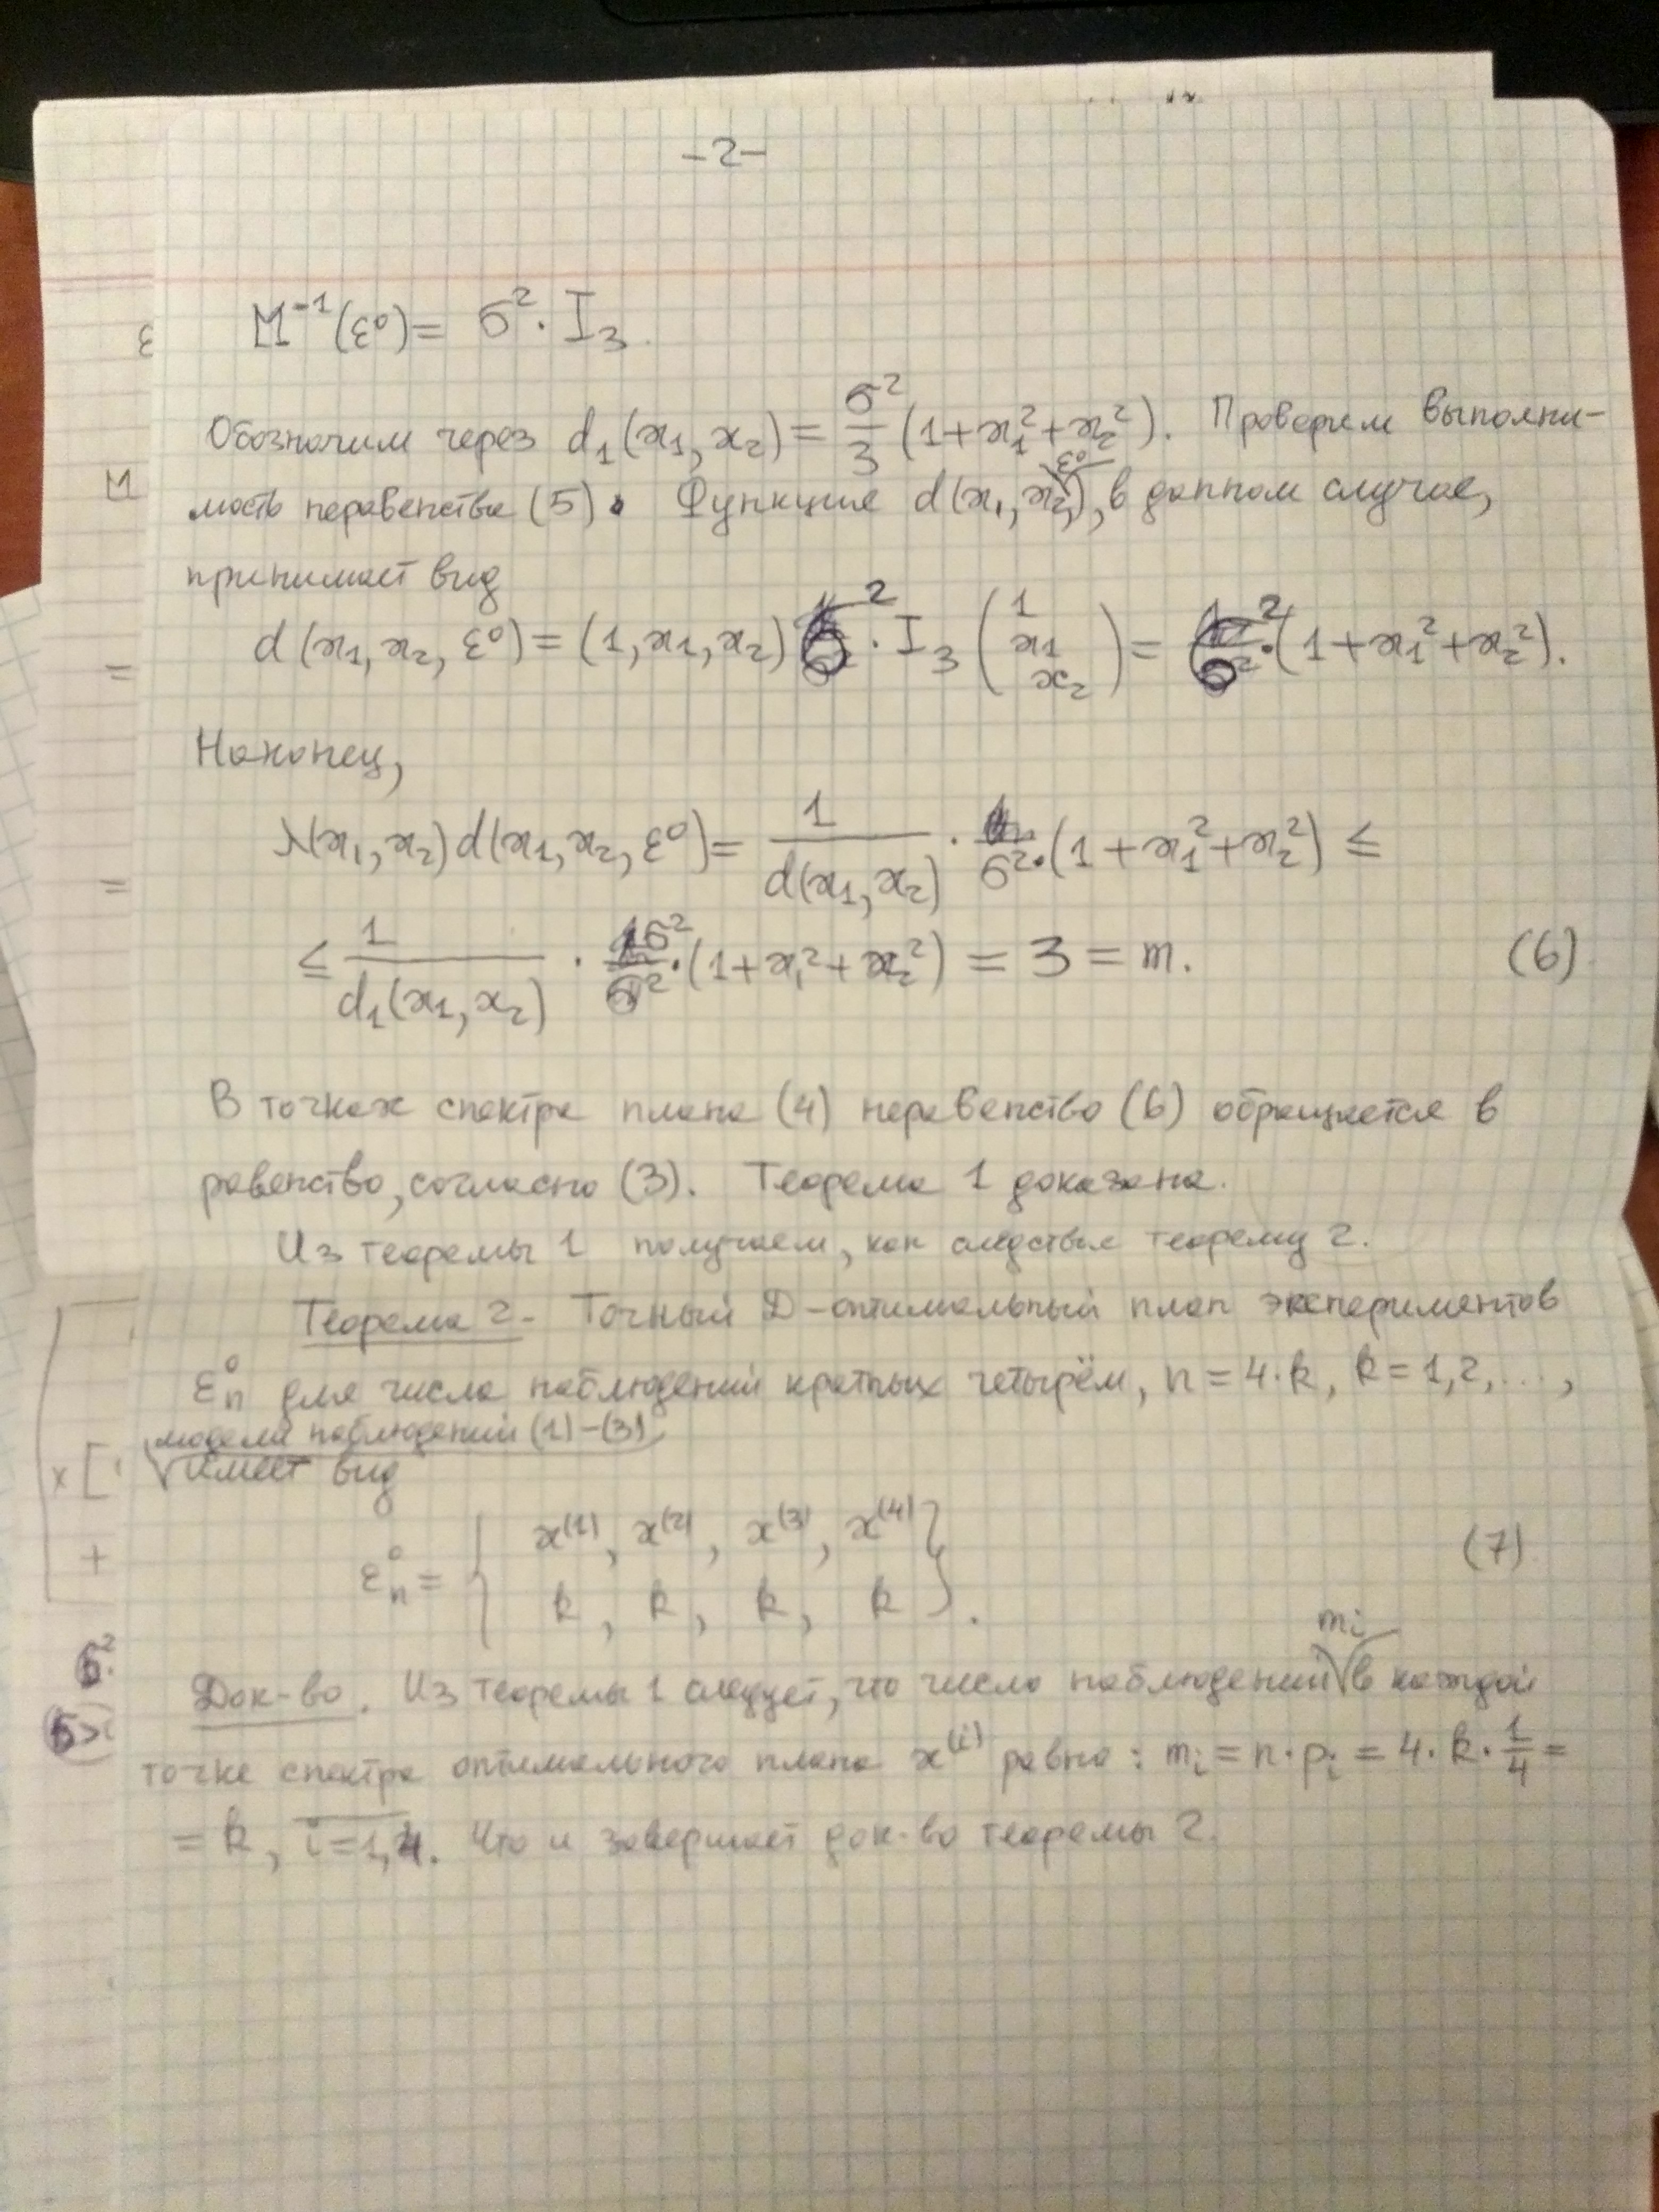 -2-
M⁻¹(ε⁰) = σ² · I₃.
Обозначим через d₁(x₁, x₂) = σ²/3 (1+x₁²+x₂²). Проверим выполни-
мость неравенства (5). Функция d(x₁, x₂, ε⁰), в данном случае,
принимает вид
d(x₁, x₂, ε⁰) = (1, x₁, x₂) σ² · I₃ (1 x₁ x₂) = σ² · (1+x₁²+x₂²).
Наконец,
λ(x₁, x₂) d(x₁, x₂, ε⁰) = 1/d(x₁, x₂) · σ² · (1+x₁²+x₂²) ≤
≤ 1/d₁(x₁, x₂) · σ² · (1+x₁²+x₂²) = 3 = m. (6)
В точках спектра плана (4) неравенство (6) обращается в
равенство, согласно (3). Теорема 1 доказана.
Из теоремы 1 получаем, как следствие теорему 2.
Теорема 2. Точный D-оптимальный план экспериментов
εₙ⁰ для числа наблюдений кратных четырём, n = 4·k, k = 1,2,...,
модели наблюдений (1)-(3)
имеет вид
εₙ⁰ = { x⁽¹⁾, x⁽²⁾, x⁽³⁾, x⁽⁴⁾ (7)
k, k, k, k }.
Док-во. Из теоремы 1 следует, что число наблюдений mᵢ в каждой
точке спектра оптимального плана x⁽ⁱ⁾ равно: mᵢ = n·pᵢ = 4·k·1/4 =
= k, i=1,4. Что и завершает док-во теоремы 2.